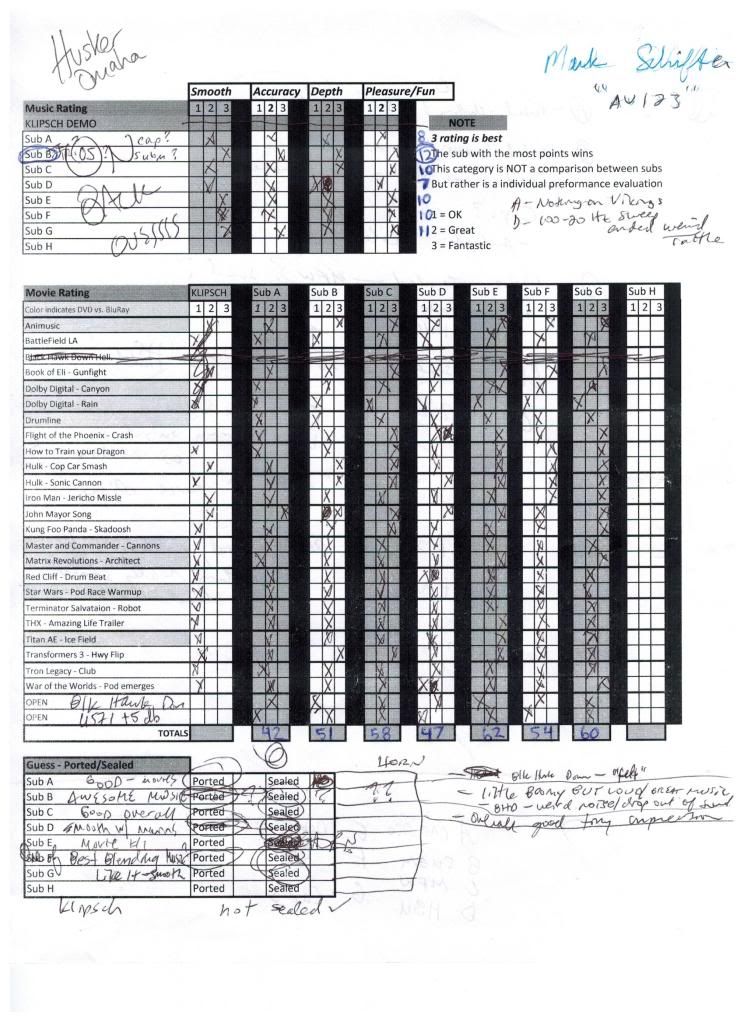 Husker
Omaha
Mark Schifter
"AV123"
Smooth Accuracy Depth Pleasure/Fun
Music Rating 1 2 3 1 2 3 1 2 3 1 2 3
KLIPSCH DEMO NOTE
Sub A 8 3 rating is best
Sub B 12 The sub with the most points wins
Sub C 10 This category is NOT a comparison between subs
Sub D 7 But rather is a individual preformance evaluation
Sub E 10
Sub F 10 1 = OK
Sub G 11 2 = Great
Sub H 3 = Fantastic
cap?
subm?
A - Nothing on Vikings
D - 100-20 Hz Sweep
ended weird
rattle
Movie Rating KLIPSCH Sub A Sub B Sub C Sub D Sub E Sub F Sub G Sub H
Color indicates DVD vs. BluRay 1 2 3 1 2 3 1 2 3 1 2 3 1 2 3 1 2 3 1 2 3 1 2 3 1 2 3
Animusic
BattleField LA
Black Hawk Down Heli.
Book of Eli - Gunfight
Dolby Digital - Canyon
Dolby Digital - Rain
Drumline
Flight of the Phoenix - Crash
How to Train your Dragon
Hulk - Cop Car Smash
Hulk - Sonic Cannon
Iron Man - Jericho Missle
John Mayor Song
Kung Foo Panda - Skadoosh
Master and Commander - Cannons
Matrix Revolutions - Architect
Red Cliff - Drum Beat
Star Wars - Pod Race Warmup
Terminator Salvataion - Robot
THX - Amazing Life Trailer
Titan AE - Ice Field
Transformers 3 - Hwy Flip
Tron Legacy - Club
War of the Worlds - Pod emerges
OPEN Blk Hawk Dwn
OPEN U571 +5 db
TOTALS 42 51 58 47 62 54 60
Guess - Ported/Sealed HORN
Sub A GOOD - movies Ported Sealed
Sub B Awesome Music Ported Sealed
Sub C Good overall Ported Sealed
Sub D Smooth w/ Ported Sealed
Sub E Movie Ported Sealed
Sub F Best Blending Music Ported Sealed
Sub G Like It - smooth Ported Sealed
Sub H Ported Sealed
Klipsch not sealed ✓
Blk Hwk Down - "felt"
- little Boomy BUT LOUD/GREAT MUSIC
- BHD - weird noise/drop out of sound
- Overall good